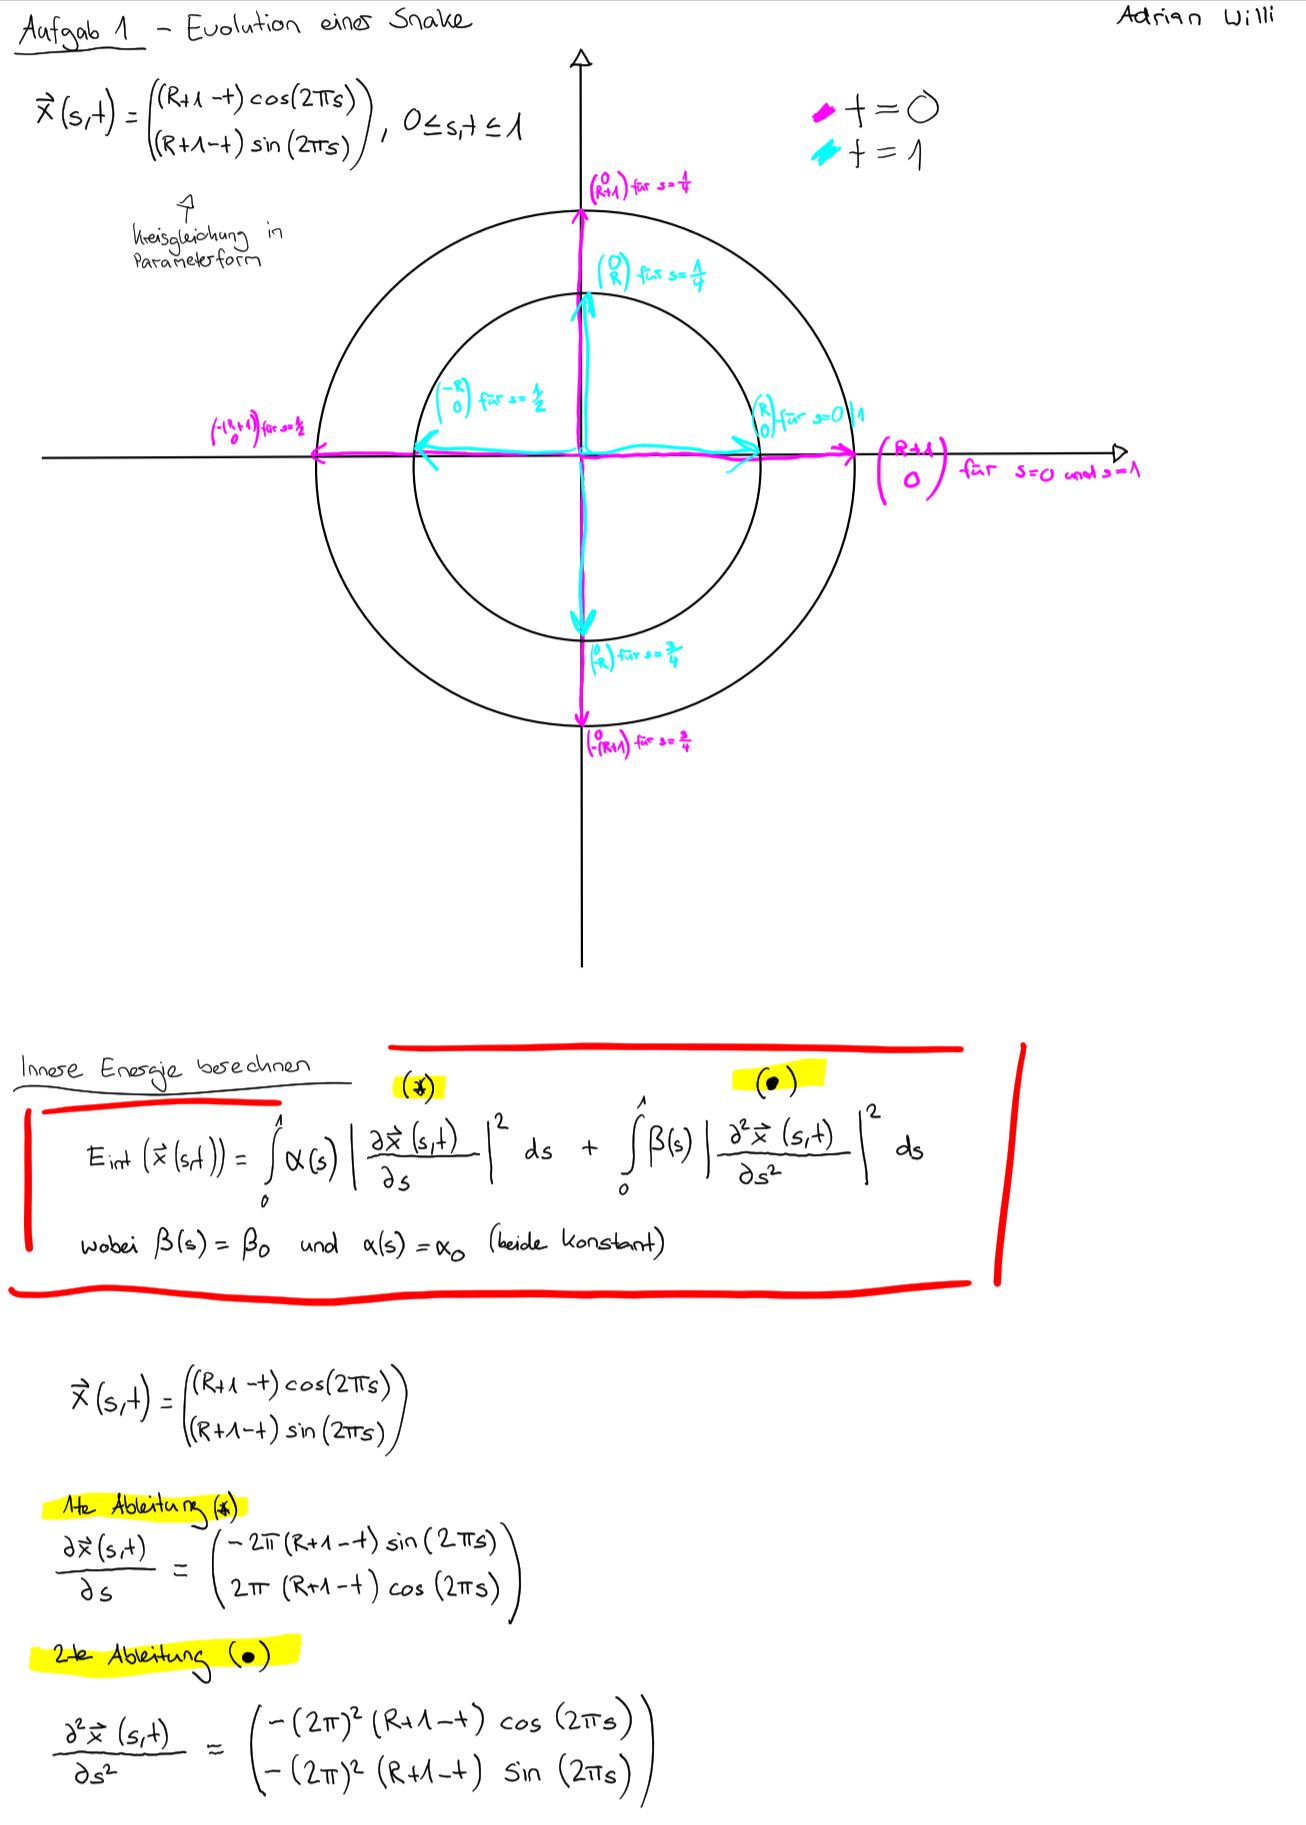 Aufgab 1 - Evolution einer Snake
Adrian Willi
x⃗(s,t) = ((R+1-t) cos(2πs)
(R+1-t) sin(2πs)), 0≤s,t≤1
Kreisgleichung in
Parameterform
t=0
t=1
(0
R+1) für s=1/4
(0
R) für s=1/4
(-R
0) für s=1/2
(R
0) für s=0|1
(-(R+1)
0) für s=1/2
(R+1
0) für s=0 und s=1
(0
-R) für s=3/4
(0
-(R+1)) für s=3/4
Innere Energie berechnen
(*) (•)
Eint (x⃗(s,t)) = ∫₀¹ α(s) |∂x⃗(s,t)/∂s|² ds + ∫₀¹ β(s) |∂²x⃗(s,t)/∂s²|² ds
wobei β(s) = β₀ und α(s) = α₀ (beide konstant)
x⃗(s,t) = ((R+1-t) cos(2πs)
(R+1-t) sin(2πs))
1te Ableitung (*)
∂x⃗(s,t)/∂s = (-2π(R+1-t) sin(2πs)
2π (R+1-t) cos(2πs))
2te Ableitung (•)
∂²x⃗(s,t)/∂s² = (-(2π)² (R+1-t) cos (2πs)
-(2π)² (R+1-t) sin (2πs))